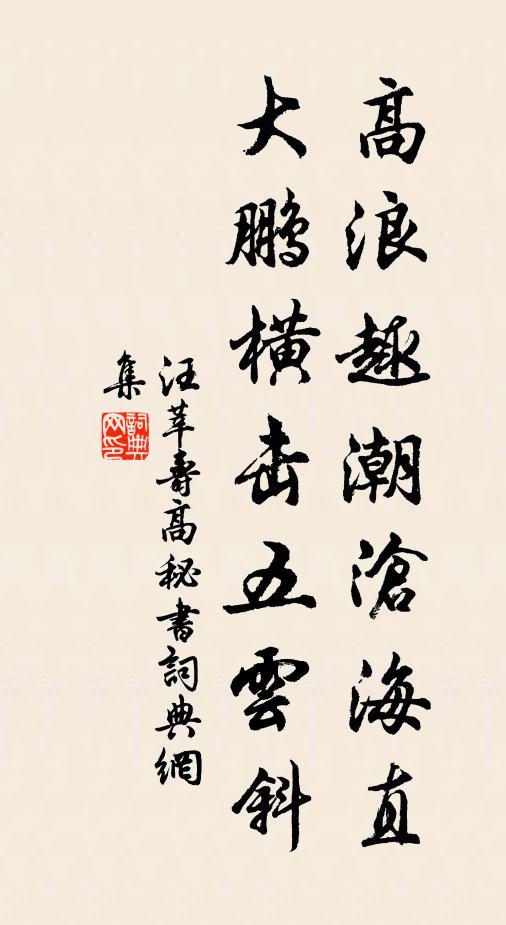 高浪趣潮滄海直
大鹏橫击五雲斜
汪莘壽高秘書詞典網
集
詞典
网印